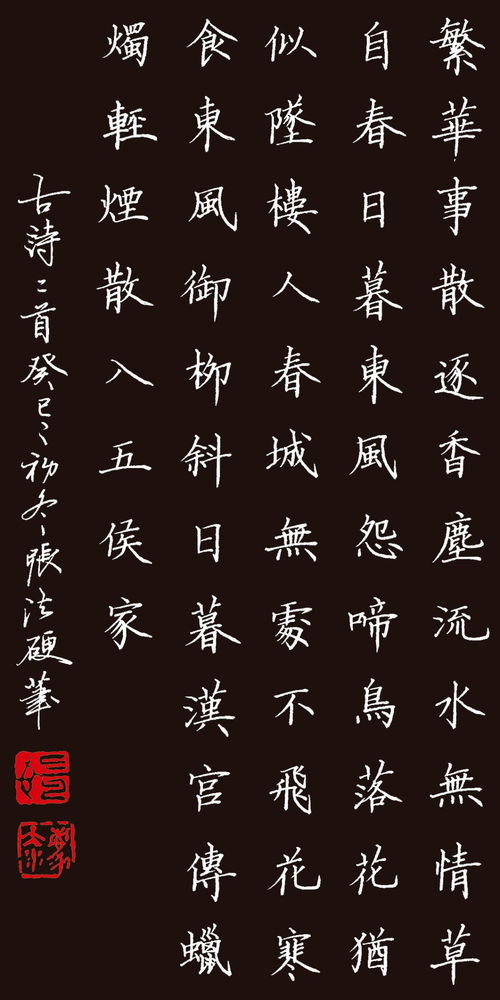 繁華事散逐香塵流水無情草
自春日暮東風怨啼鳥落花猶
似墜樓人春城無處不飛花寒
食東風御柳斜日暮漢宮傳蠟
燭輕煙散入五侯家
古詩二首癸巳初冬張法硬筆